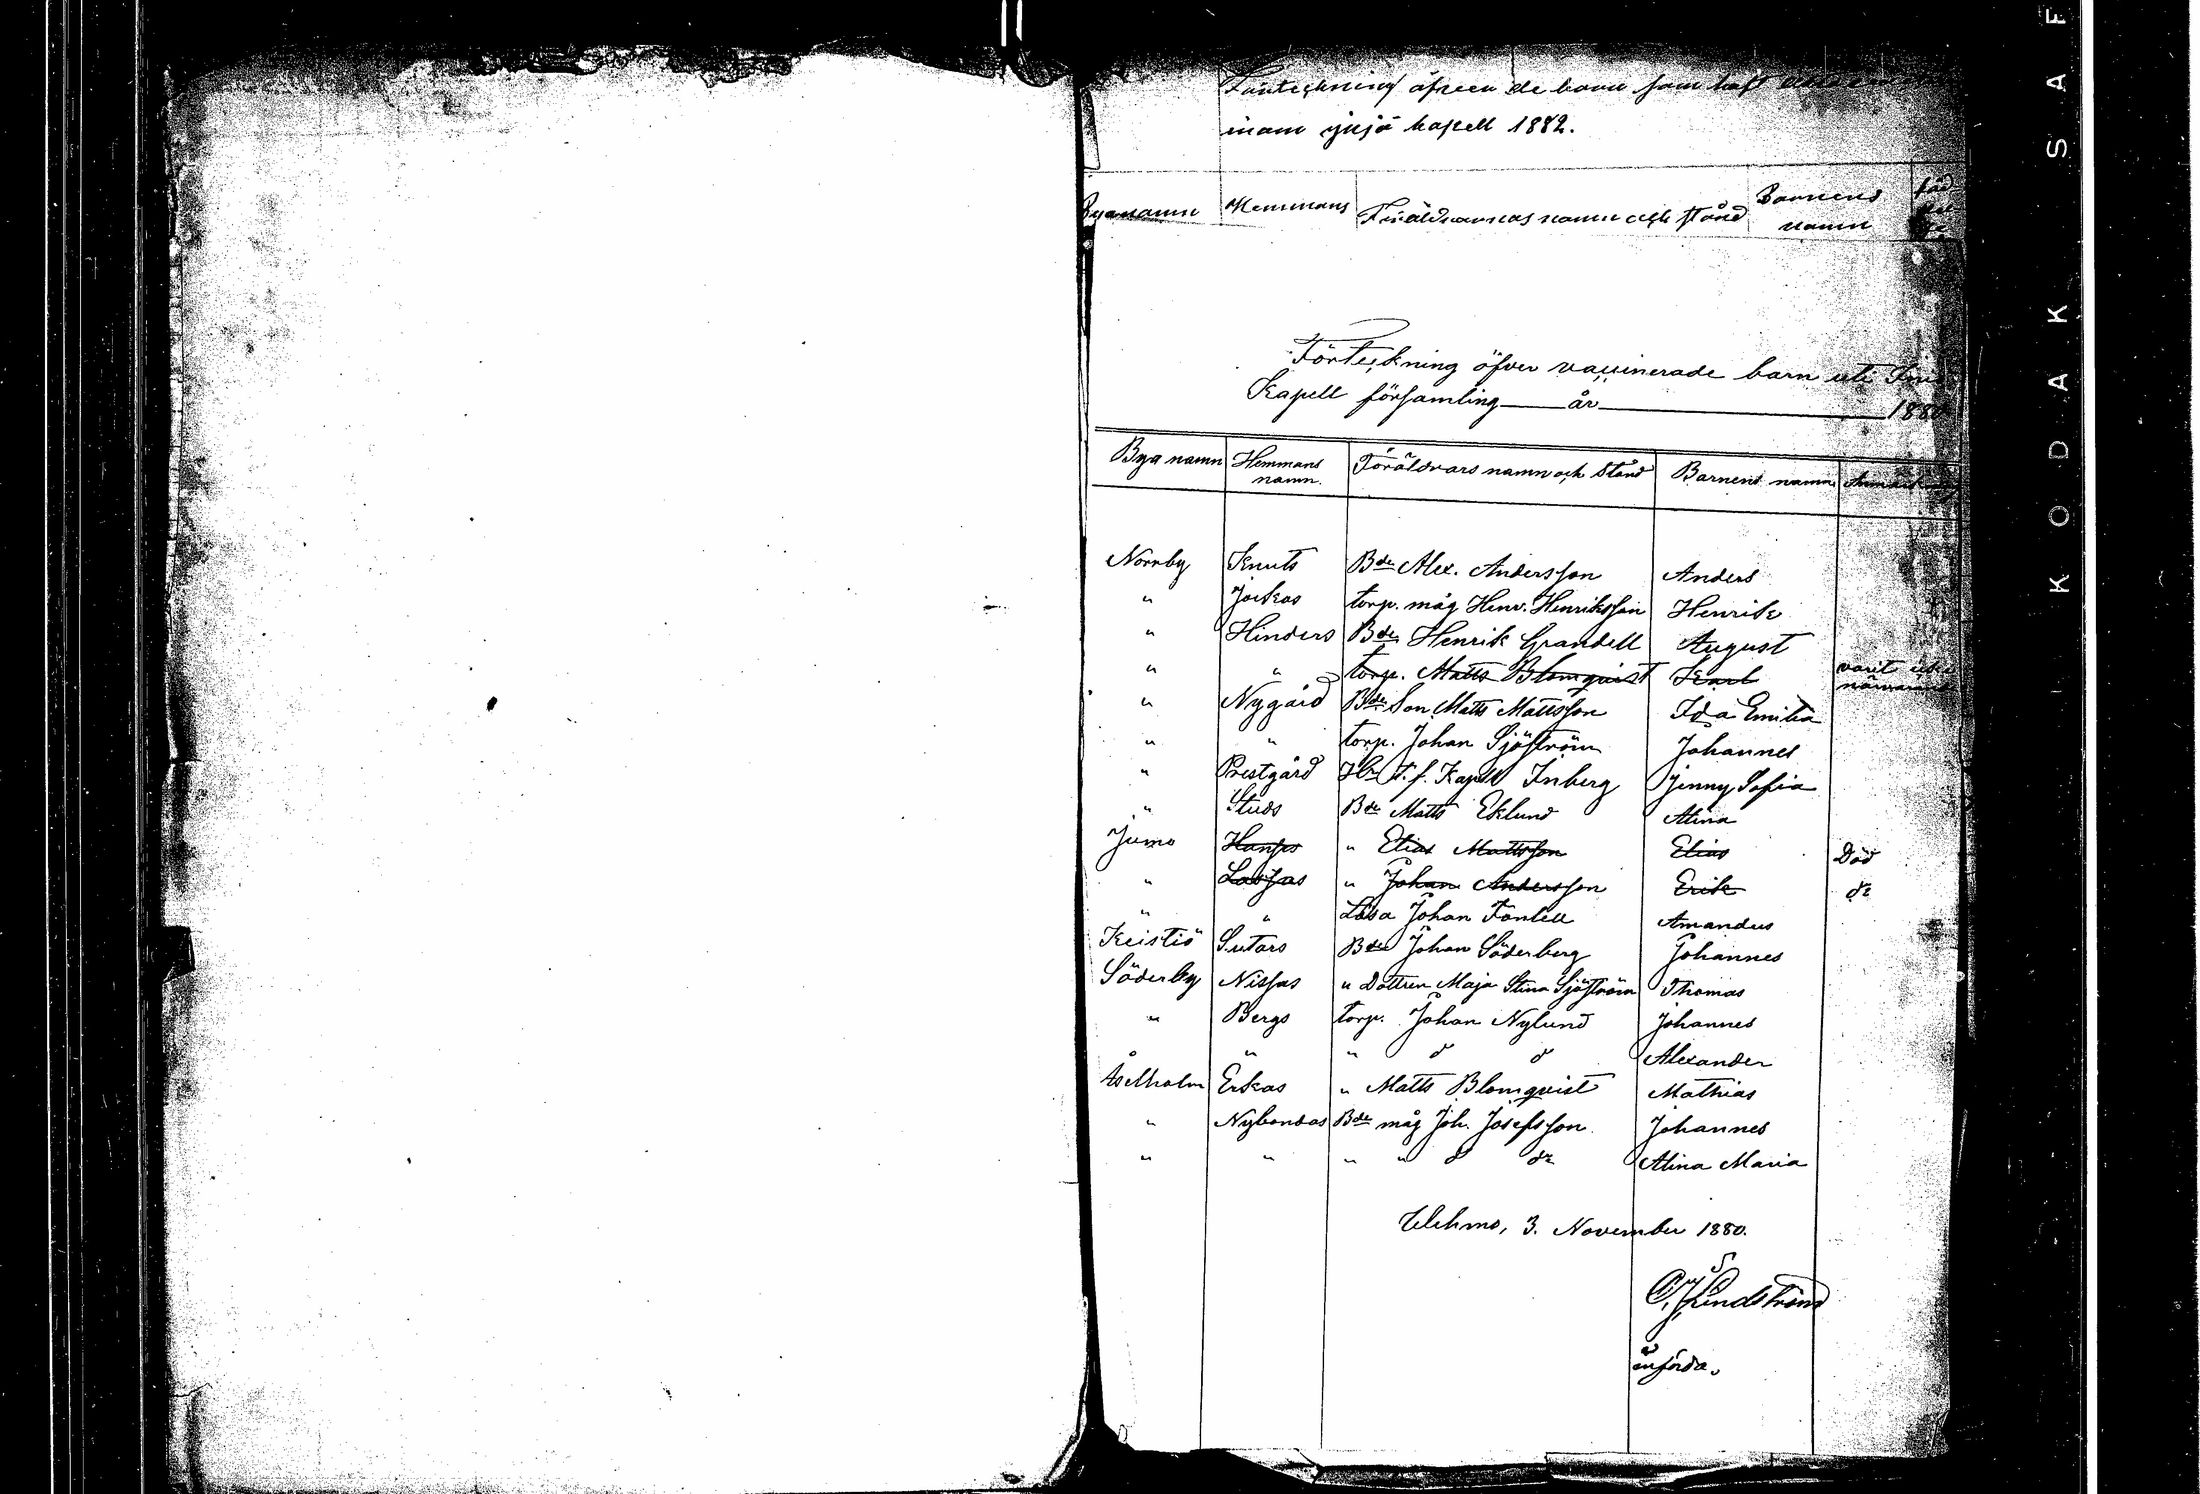 Förteckning öfver de barn som haft
inom Iniö kapell 1882.
Byanamn Hemmans Föräldrarnas namn och stånd Barnens namn
Förteckning öfver vaccinerade barn uti Iniö
Kapell församling år 1880
Bya namn Hemmans namn. Föräldrars namn och Stånd Barnens namn Anmärkning
Norrby Knuts Bde Alex. Andersson Anders
" Jockas torp. måg Henr. Henriksson Henrik
" Hinders Bde Henrik Grandell August
" " torp. Matts Blomqvist Karl varit icke närvarande
" Nygård Bde Son Matts Mattsson Ida Emilia
" " torp. Johan Sjöström Johannes
" Prestgård Hr T.f. Kapell Inberg Jenny Sofia
" Studs Bde Matts Eklund Alina
Jumo Hanses " Elias Mattsson Elias Död
" Lassas " Johan Andersson Erik do
" " Lösa Johan Amandus
Keistiö Sutars Bde Johan Söderberg Johannes
Söderby Nissas " Dottren Maja Stina Sjöström Thomas
" Bergs torp. Johan Nylund Johannes
" " " d d Alexander
Åselholm Erkas " Matts Blomqvist Mathias
" Nybondas Bde måg Joh. Josefsson Johannes
" " " " d do Alina Maria
3. November 1880.
C. J. Lindström
införda.